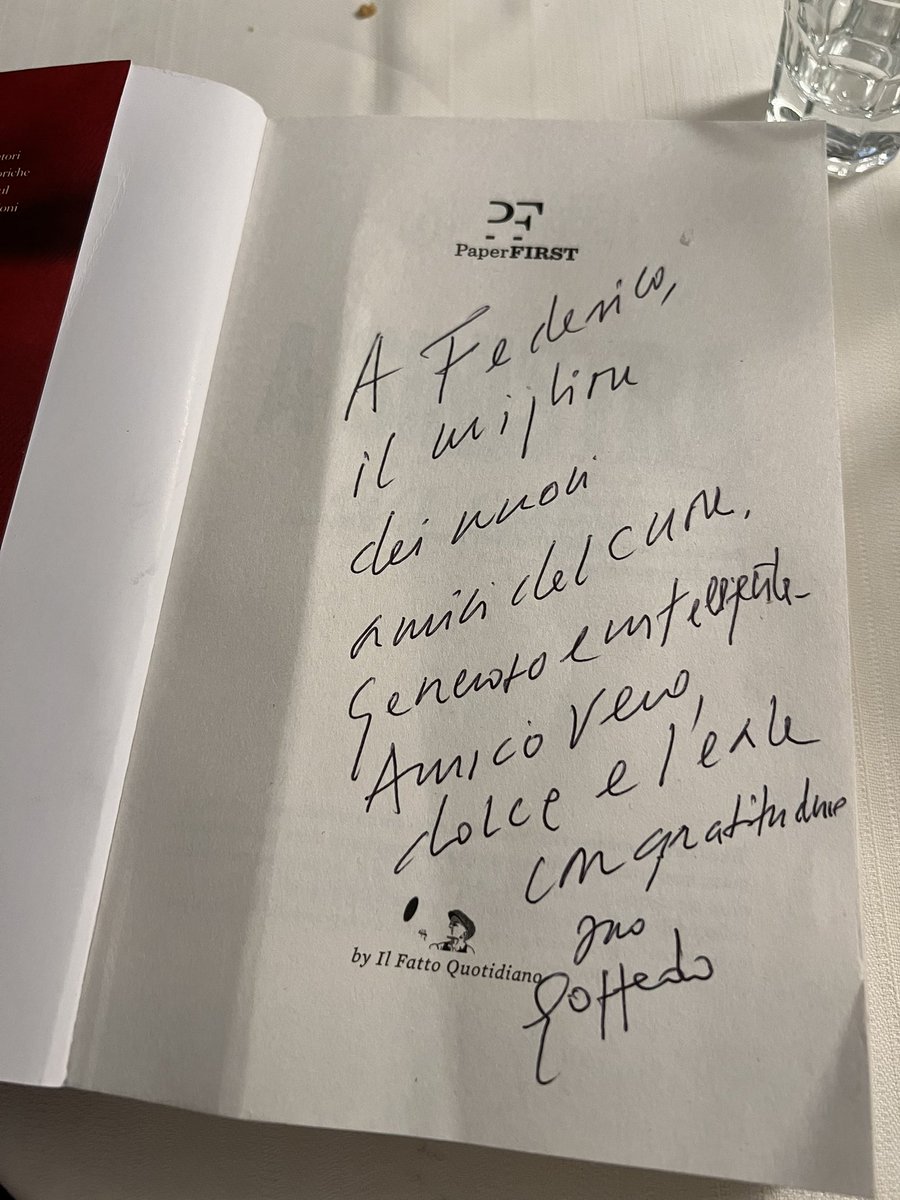 tori
oriche
ul
oni
PF
PaperFIRST
A Federico,
il migliore
dei nuovi
amici del cuore,
Generoso e intelligente
Amico Vero,
dolce e leale
con gratitudine
suo
Goffredo
by Il Fatto Quotidiano